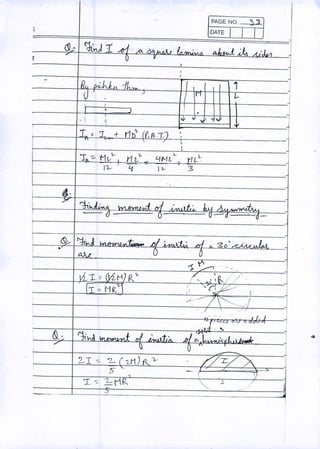 PAGE NO. 32
DATE
Q. Find I of a square lamina about its sides.
By pithku thm,
M
L
I_A = I_cm + MD² (P.A.T.)
I_A = ML²/12 + ML²/4 = 4ML²/12 = ML²/3
Q.
Finding moment of inertia by symmetry
Q. Find moment of inertia of a 30° circular
arc
I M
R
½ I = (½ M) R²
I = MR²
pieces are added
Q. Find moment of inertia of a solid hemisphere.
2I = 2/5 (2M) R²
I
I = 2/5 MR²